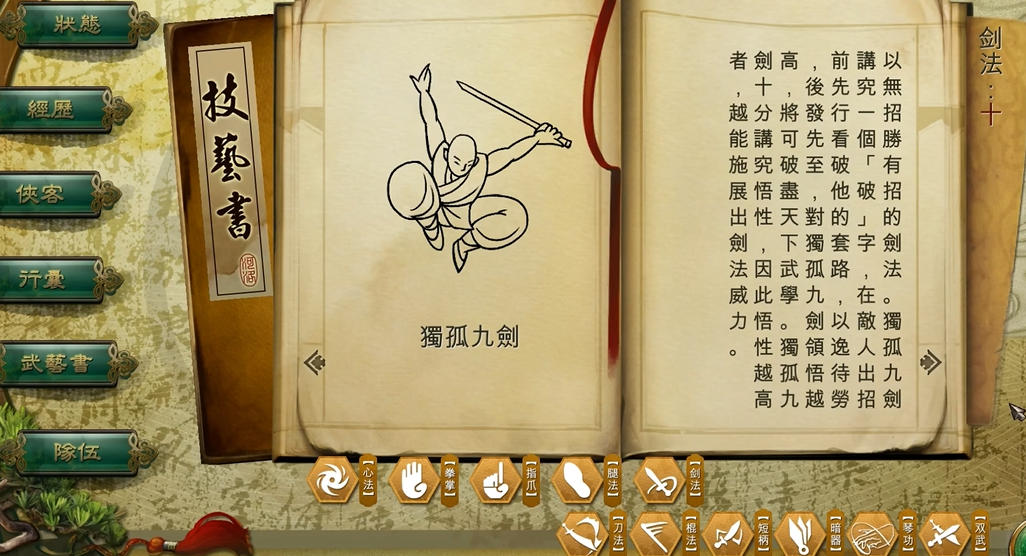 狀態
經歷
俠客
行囊
武藝書
隊伍
技藝書
獨孤九劍
剑法：十
以無招勝有招的劍法。獨孤九劍
講究一個「破」字，在敵人出招
前先行看破他的套路，以逸待勞
，後發先至，對獨孤九劍領悟越
高，將可破盡天下武學。獨孤九
劍十分講究悟性，因此悟性越高
者，越能施展出劍法威力。
【心法】
【拳掌】
【指爪】
【腿法】
【剑法】
【刀法】
【棍法】
【短柄】
【暗器】
【琴功】
【双武】